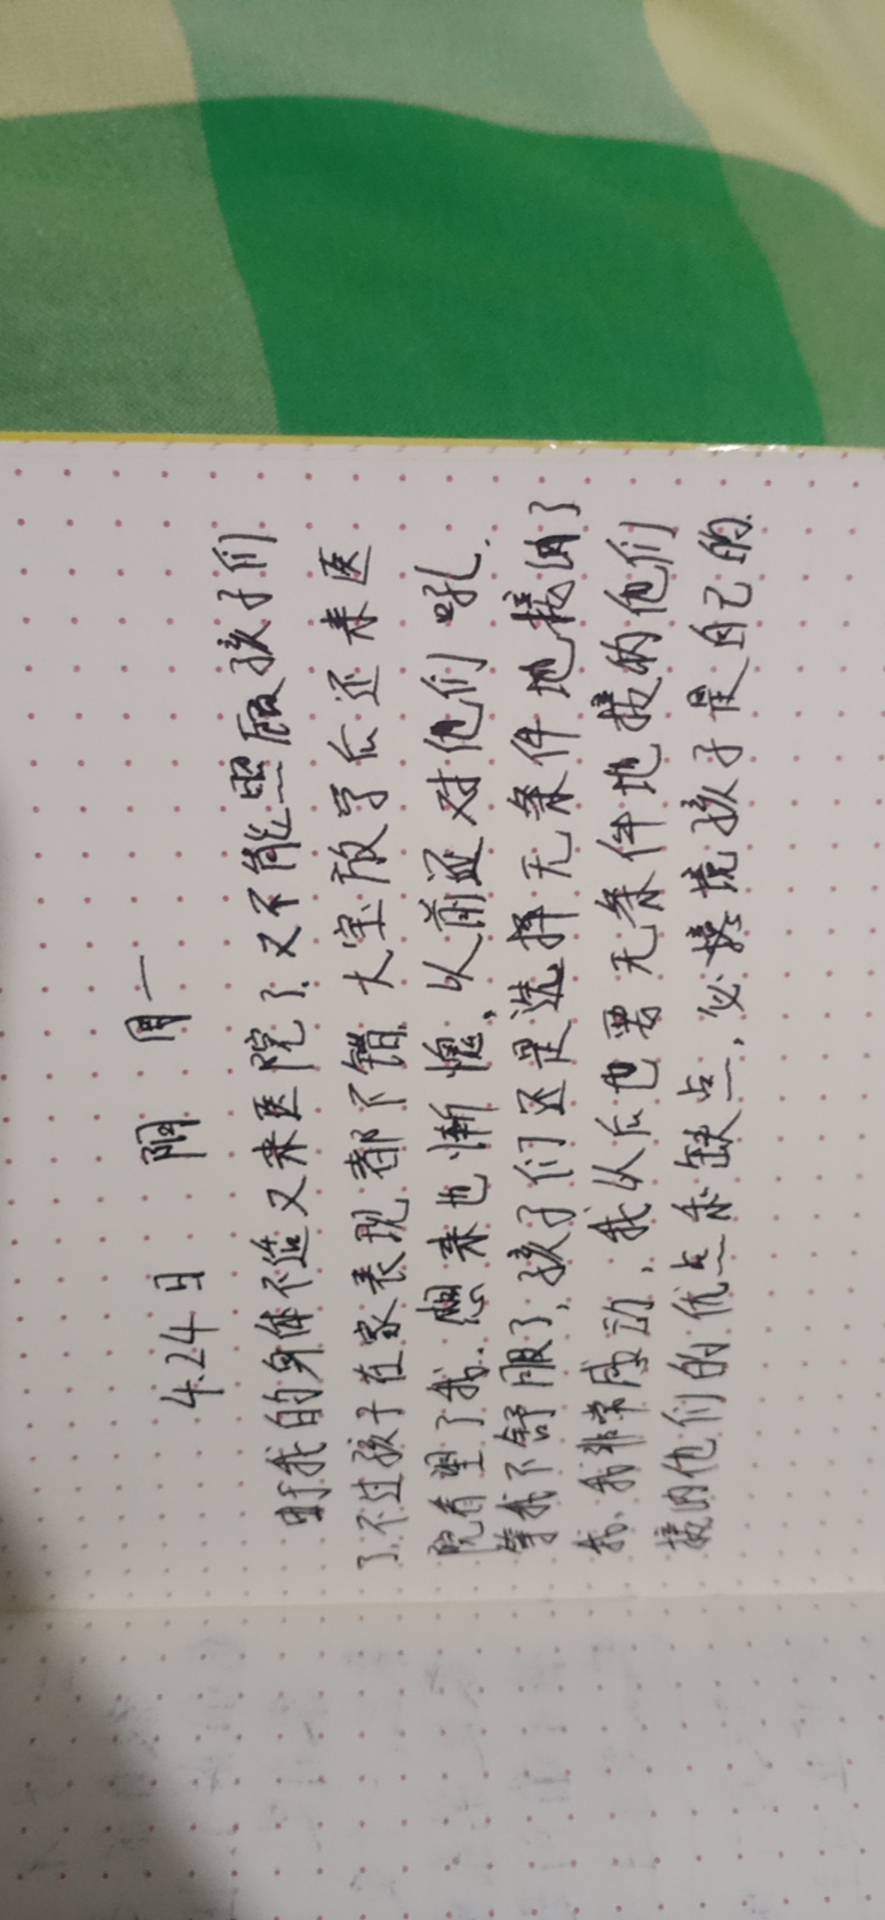 4.24日 阴 周一
由于我的身体不适又来医院了.又不能照顾孩子们
了.不过孩子在家表现都不错.大宝放学后还来医
院看望了我.想来也惭愧,以前还对他们吼.
等我不舒服了,孩子们还是选择无条件地接纳了
我、我非常感动,我从后也要无条件地接纳他们
接纳他们的优点和缺点,必境孩子是自己的.